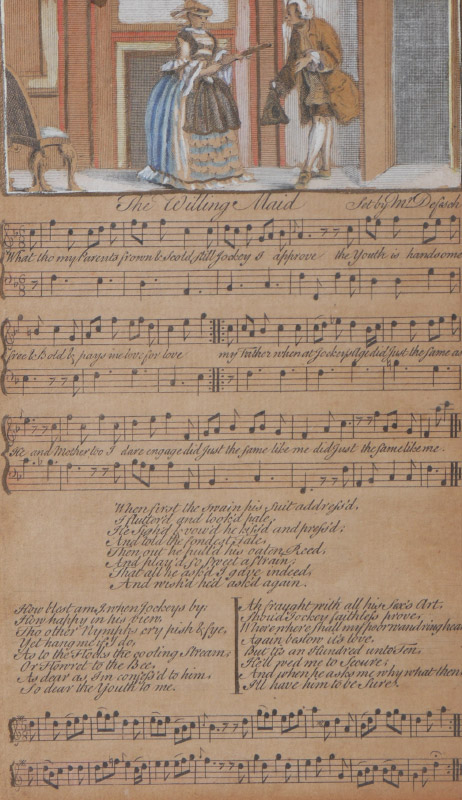 The Willing Maid Set by Mr. Defesch
What tho my Parents frown & Scold, still Jockey I approve the Youth is handsome
free & Bold & pays me love for love my Father when at Jockeys Age did just the same as
He and Mother too I dare engage did just the same like me did just the same like me
When first the swain his Suit address'd,
I flutter'd and look'd pale,
He sigh'd & vow'd he kiss'd and press'd;
And told the fondest Tale,
Then out he pull'd his oaten Reed,
And play'd so sweet a strain,
That all he ask'd I gave indeed,
And wish'd he'd ask'd again.
How blest am I when Jockeys by:
How happy in his view,
Tho other Nymphs cry pish & fye,
Yet hang me if I do,
As to the Flocks the cooling Stream;
Or Flow'ret to the Bee,
As dear as I'm confess'd to him,
So dear the Youth to me.
Ah fraught with all his Sex's Art,
Should Jockey faithless prove,
Where where shall my poor wand'ring heart
Again bestow its love.
But tis an Hundred unto Ten,
He'll wed me to Secure;
And when he asks me why what then,
I'll have him to be Sure.